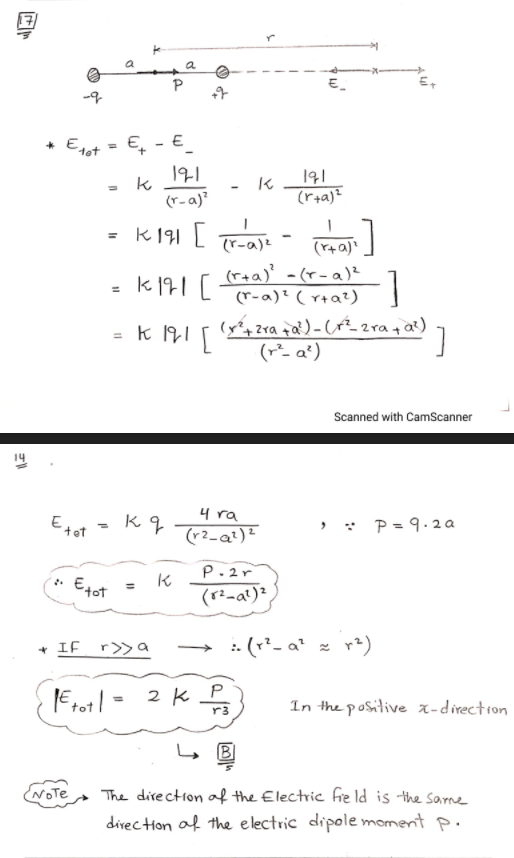 17
r
a a
-q P +q E_ E+
* E_tot = E+ - E_
= K |q| / (r-a)² - K |q| / (r+a)²
= K |q| [ 1 / (r-a)² - 1 / (r+a)² ]
= K |q| [ (r+a)² - (r-a)² / (r-a)² (r+a²) ]
= K |q| [ (r²+2ra+a²) - (r²-2ra+a²) / (r²-a²) ]
Scanned with CamScanner
14
E_tot = K q 4ra / (r²-a²)² , ∵ P = q.2a
∴ E_tot = K P.2r / (r²-a²)²
* IF r>>a → ∴ (r²-a² ≈ r²)
|E_tot| = 2 K P / r3 In the positive x-direction
↳ B
NoTe → The direction of the Electric field is the same
direction of the electric dipole moment P.